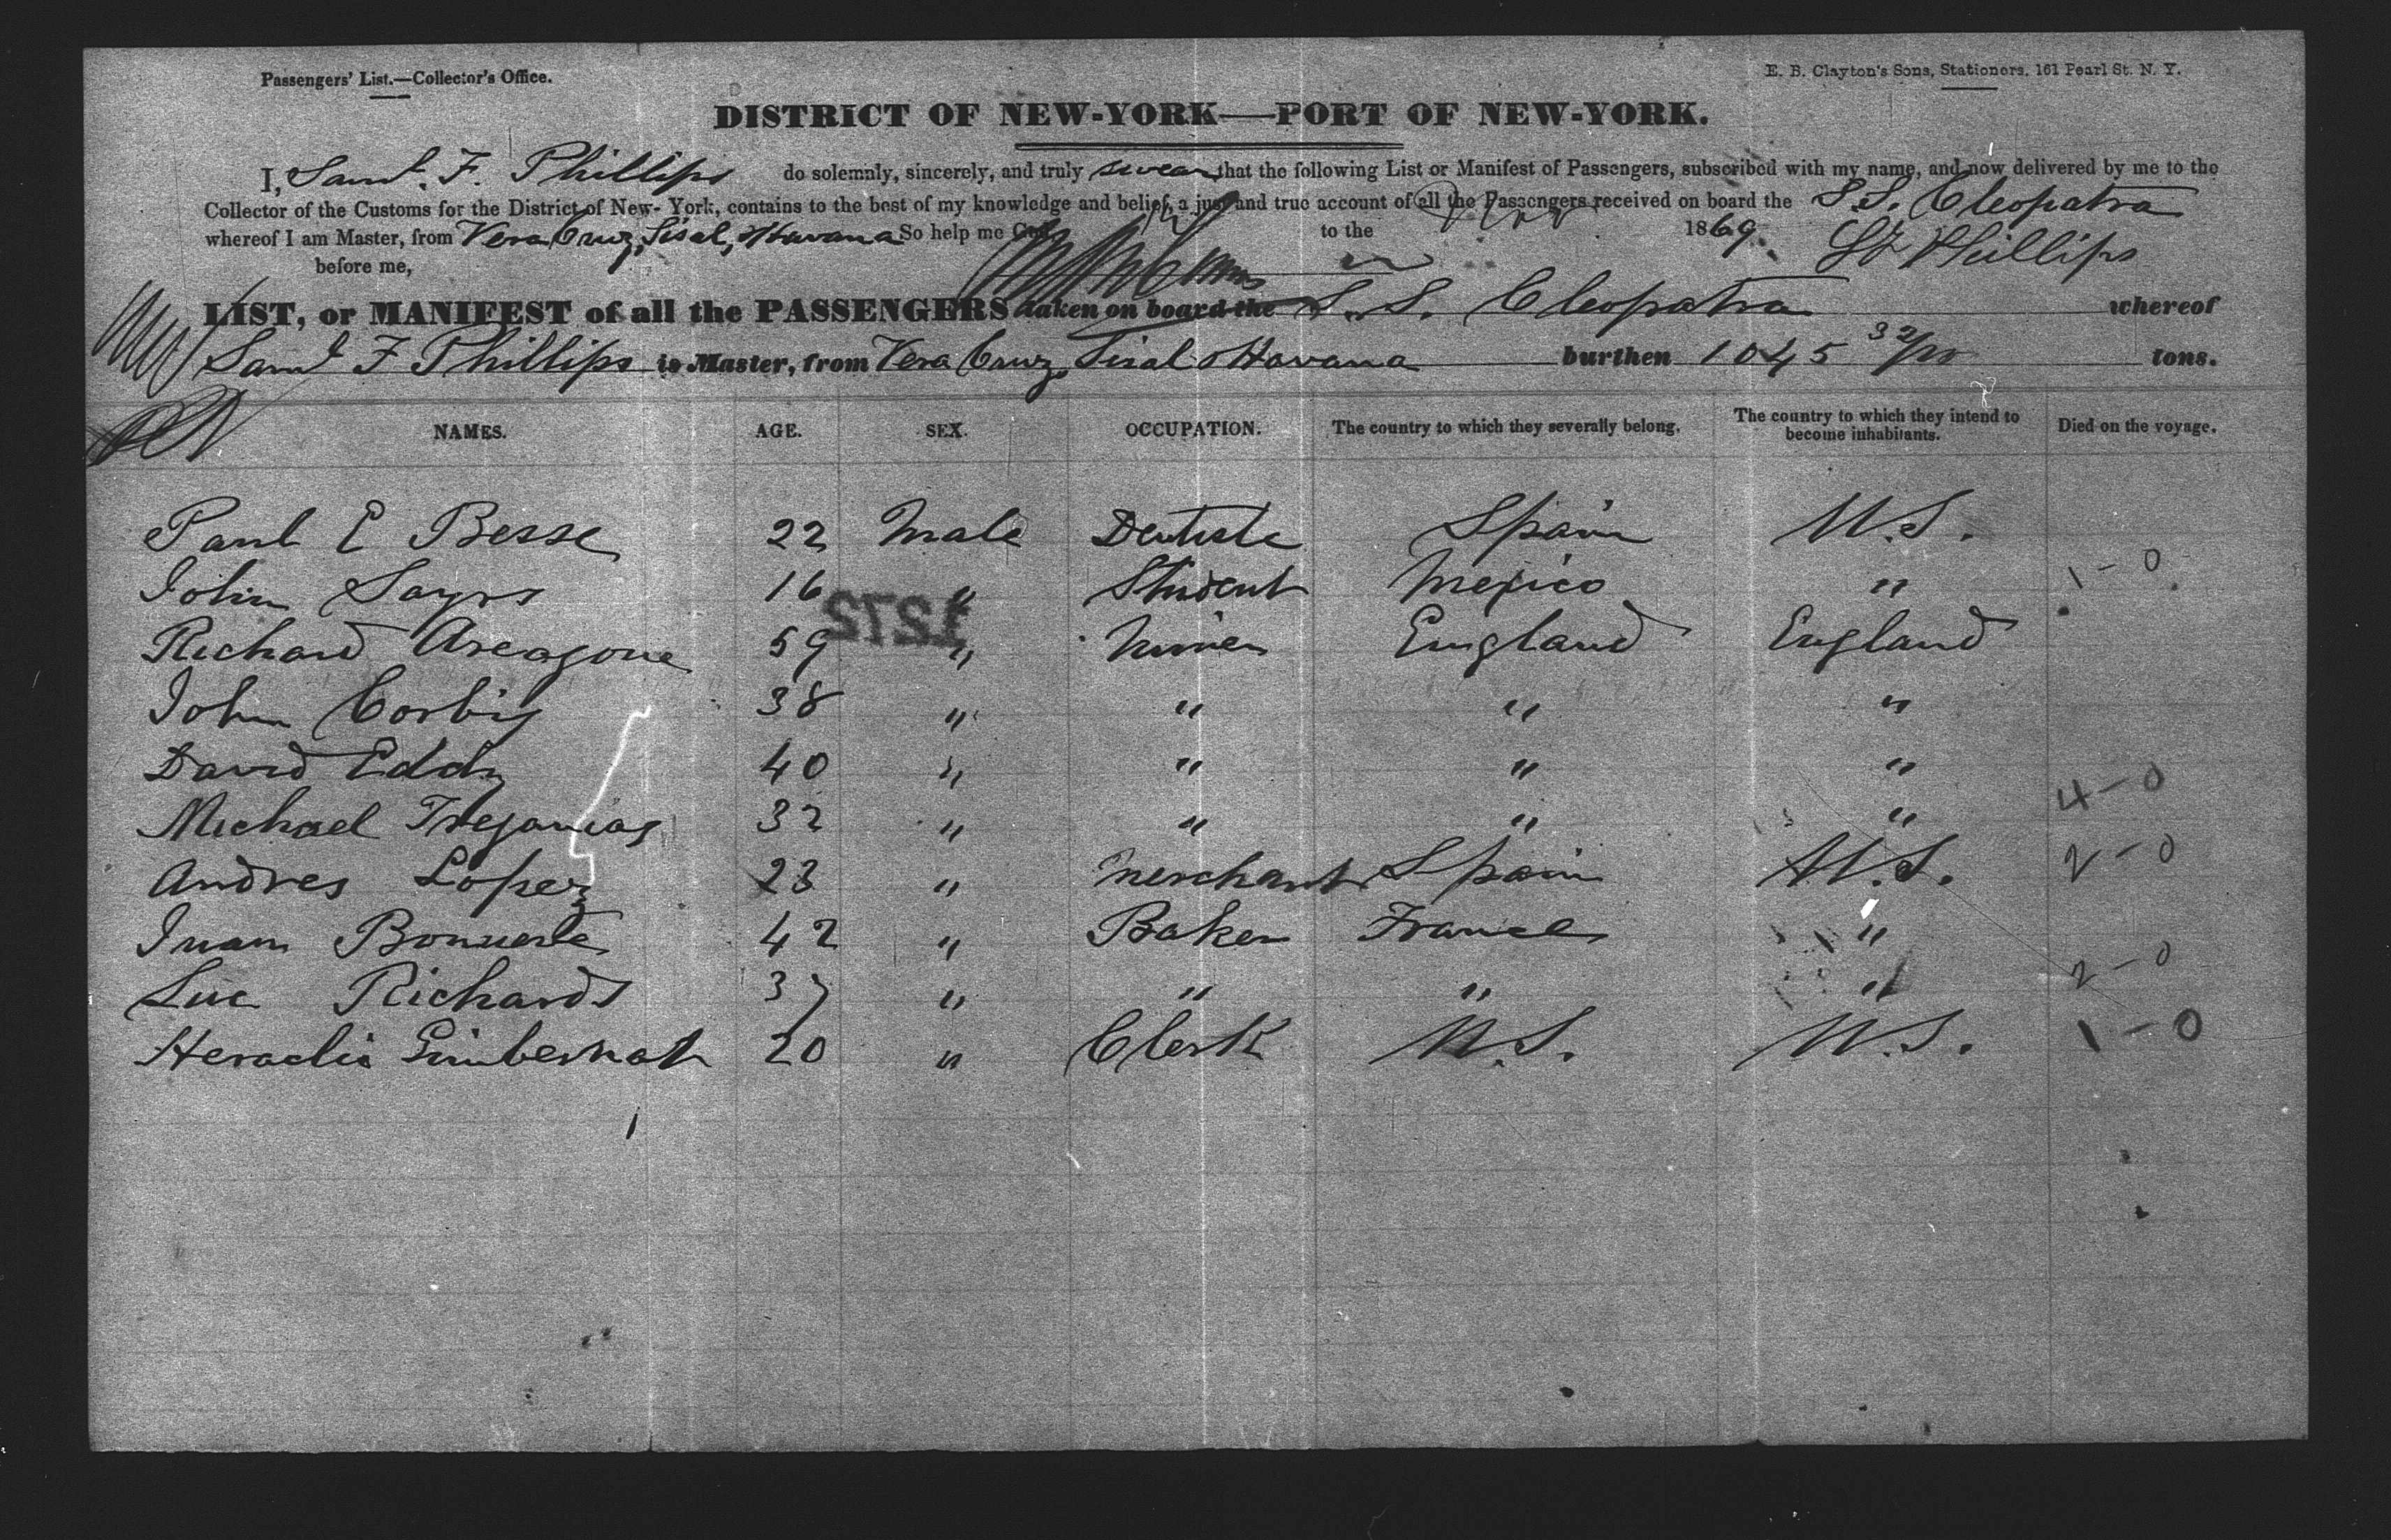 Passengers' List.—Collector's Office.
E. B. Clayton's Sons, Stationers. 161 Pearl St. N. Y.
DISTRICT OF NEW-YORK—PORT OF NEW-YORK.
I, Saml. F. Phillips do solemnly, sincerely, and truly swear that the following List or Manifest of Passengers, subscribed with my name, and now delivered by me to the
Collector of the Customs for the District of New-York, contains to the best of my knowledge and belief, a just and true account of all the Passengers received on board the S.S. Cleopatra
whereof I am Master, from Vera Cruz, Sisal, Havana So help me God to the 1869. SF Phillips
before me,
LIST, or MANIFEST of all the PASSENGERS taken on board the S.S. Cleopatra whereof
Saml F Phillips is Master, from Vera Cruz, Sisal Havana burthen 1045 tons.
NAMES. AGE. SEX. OCCUPATION. The country to which they severally belong. The country to which they intend to become inhabitants. Died on the voyage.
Paul E Besse 22 Male Dentiste Spain U.S.
John Sayrs 16 " Student Mexico " 1-0
1212
Richard Areagone 59 " Miner England England
John Corbig 38 " " " "
David Eddy 40 " " " "
Michael 32 " " " " 4-0
Andres Lopez 23 " Merchant Spain U.S. 2-0
Juan 42 " Baker France "
Luc Richards 37 " " " " 2-0
Heraclio Gimbernat 20 " Clerk U.S. U.S. 1-0